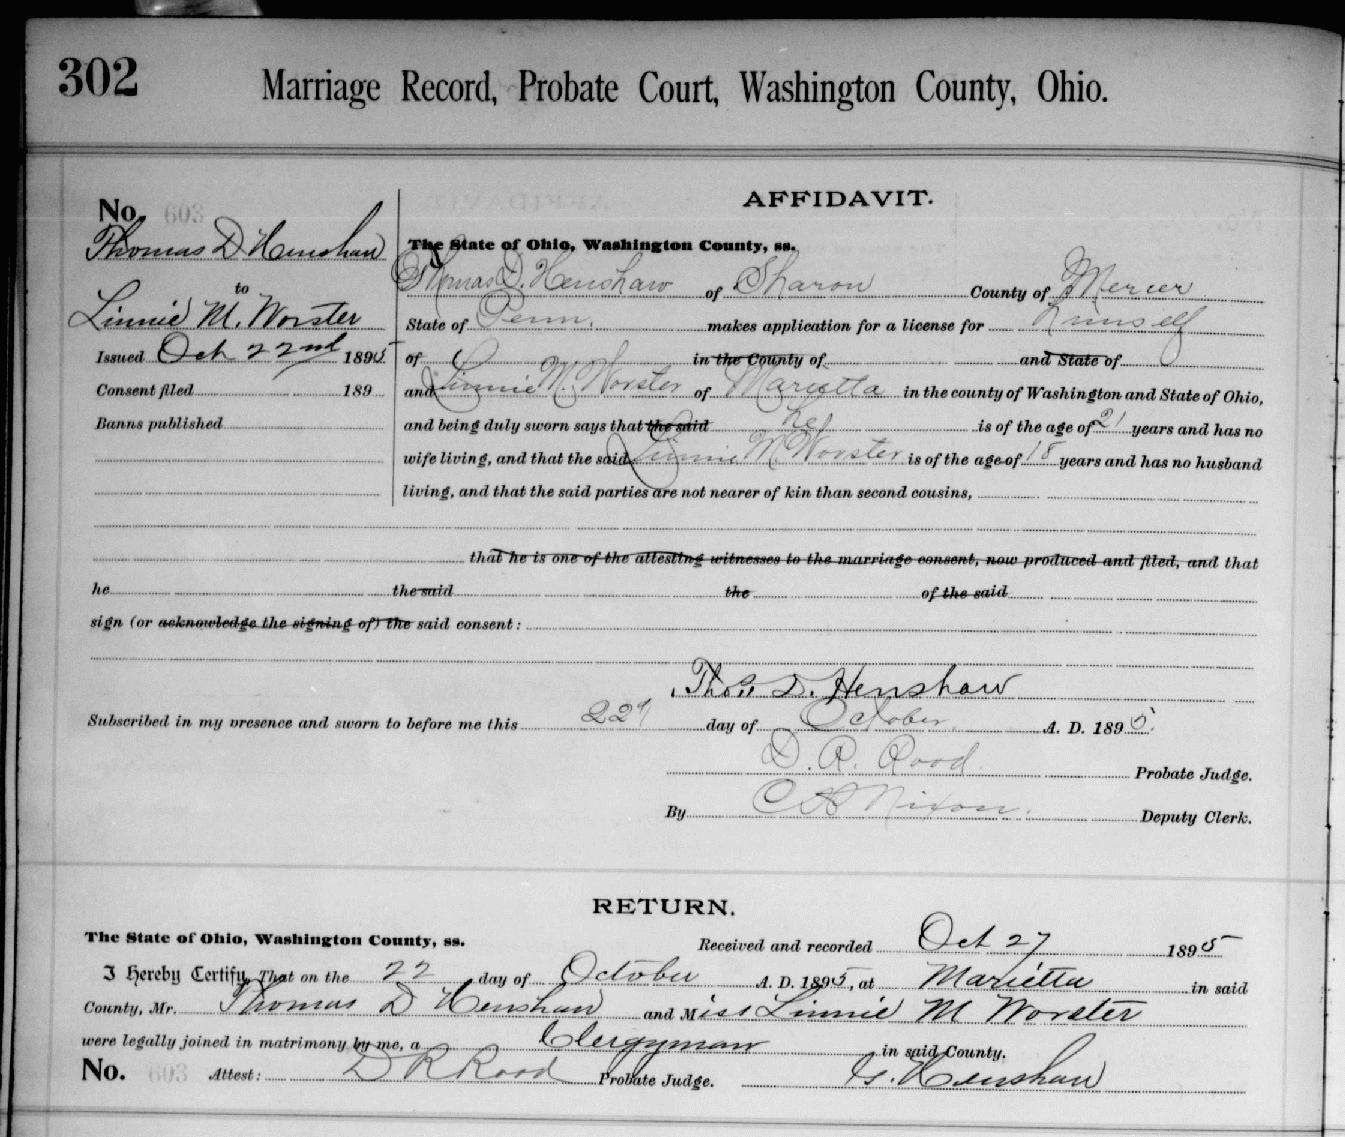 302 Marriage Record, Probate Court, Washington County, Ohio.
No. 603
Thomas D Henshaw
to
Linnie M. Worster
Issued Oct 22nd 1895
Consent filed 189
Banns published
AFFIDAVIT.
The State of Ohio, Washington County, ss.
Thomas D. Henshaw of Sharon County of Mercer
State of Penn. makes application for a license for himself
of in the County of and State of
and Linnie M. Worster of Marietta in the county of Washington and State of Ohio,
and being duly sworn says that the said he is of the age of 21 years and has no
wife living, and that the said Linnie M Worster is of the age of 18 years and has no husband
living, and that the said parties are not nearer of kin than second cousins,
that he is one of the attesting witnesses to the marriage consent, now produced and filed, and that
he the said the of the said
sign (or acknowledge the signing of) the said consent:
Thos. D. Henshaw
Subscribed in my presence and sworn to before me this 22 day of October A. D. 1895.
D. R. Rood Probate Judge.
By C H Nixon. Deputy Clerk.
RETURN.
The State of Ohio, Washington County, ss. Received and recorded Oct 27 1895
I Hereby Certify, That on the 22 day of October A. D. 1895, at Marietta in said
County, Mr. Thomas D Henshaw and Miss Linnie M Worster
were legally joined in matrimony by me, a Clergyman in said County.
No. 603 Attest: D R Rood Probate Judge. G. Henshaw